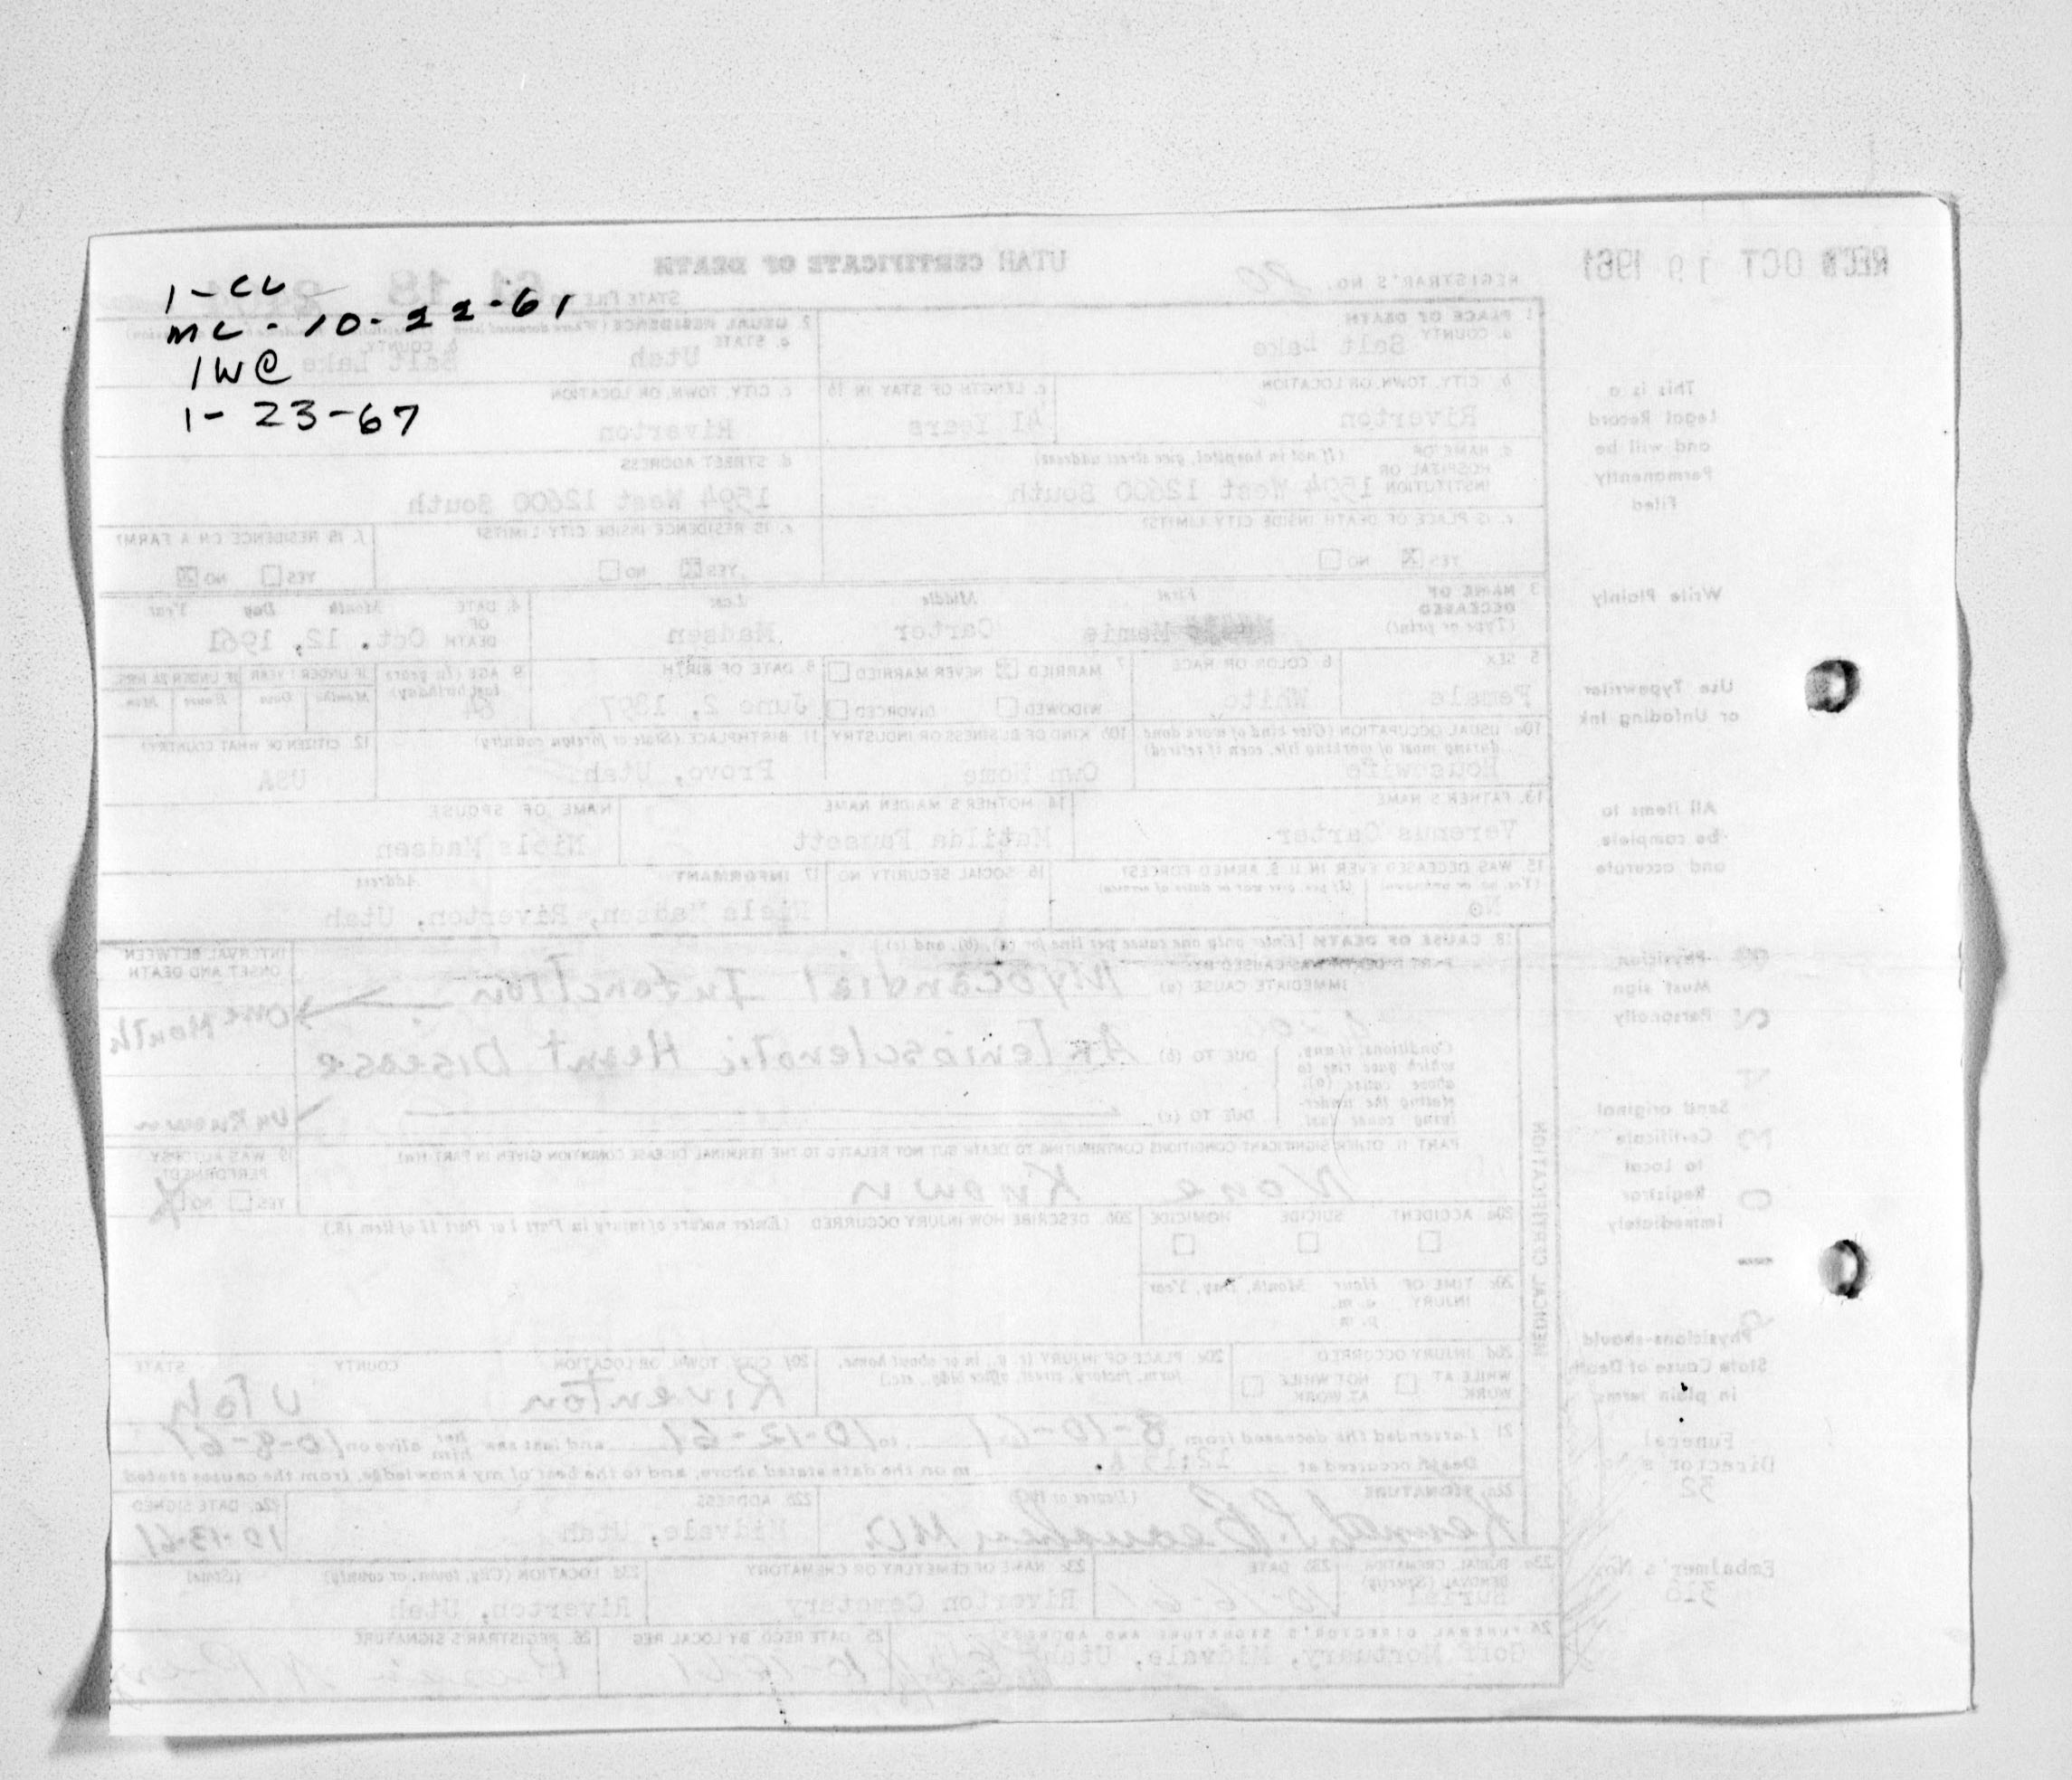 1-CC
MC-10-22-61
1WC
1-23-67
REC'D OCT 19 1961
UTAH CERTIFICATE OF DEATH
REGISTRAR'S NO. 20
STATE FILE
1. PLACE OF DEATH
a. COUNTY Salt Lake
2. USUAL RESIDENCE
a. STATE Utah
b. COUNTY Salt Lake
b. CITY, TOWN, OR LOCATION Riverton
c. LENGTH OF STAY IN 1b 41 Years
c. CITY, TOWN, OR LOCATION Riverton
d. NAME OF HOSPITAL OR INSTITUTION (If not in hospital, give street address) 1594 West 12600 South
d. STREET ADDRESS 1594 West 12600 South
e. IS PLACE OF DEATH INSIDE CITY LIMITS? YES X NO
e. IS RESIDENCE INSIDE CITY LIMITS? YES NO
f. IS RESIDENCE ON A FARM? YES NO
3. NAME OF DECEASED (Type or print) First Middle Carter Last Madsen
4. DATE OF DEATH Month Day Year Oct. 12, 1961
5. SEX Female
6. COLOR OR RACE White
7. MARRIED NEVER MARRIED WIDOWED DIVORCED
8. DATE OF BIRTH June 2, 1897
9. AGE (In years last birthday) 64
IF UNDER 1 YEAR Months Days
IF UNDER 24 HRS. Hours Min.
10a. USUAL OCCUPATION (Give kind of work done during most of working life, even if retired) Housewife
10b. KIND OF BUSINESS OR INDUSTRY Own Home
11. BIRTHPLACE (State or foreign country) Provo, Utah
12. CITIZEN OF WHAT COUNTRY? USA
13. FATHER'S NAME Verenus Carter
14. MOTHER'S MAIDEN NAME Matilda Fausett
NAME OF SPOUSE Niels Madsen
15. WAS DECEASED EVER IN U.S. ARMED FORCES? (Yes, no, or unknown) (If yes, give war or dates of service) No
16. SOCIAL SECURITY NO.
17. INFORMANT Address Niels Madsen, Riverton, Utah
18. CAUSE OF DEATH [Enter only one cause per line for (a), (b), and (c).]
PART I. DEATH WAS CAUSED BY:
IMMEDIATE CAUSE (a) Myocardial Infarction
INTERVAL BETWEEN ONSET AND DEATH one Month
Conditions, if any, which gave rise to above cause (a), stating the underlying cause last.
DUE TO (b) Arteriosclerotic Heart Disease
DUE TO (c)
unknown
PART II. OTHER SIGNIFICANT CONDITIONS CONTRIBUTING TO DEATH BUT NOT RELATED TO THE TERMINAL DISEASE CONDITION GIVEN IN PART I(a)
None Known
19. WAS AUTOPSY PERFORMED? YES NO X
20a. ACCIDENT SUICIDE HOMICIDE
20b. DESCRIBE HOW INJURY OCCURRED (Enter nature of injury in Part I or Part II of item 18.)
20c. TIME OF INJURY Hour Month, Day, Year a.m. p.m.
20d. INJURY OCCURRED WHILE AT WORK NOT WHILE AT WORK
20e. PLACE OF INJURY (e.g., in or about home, farm, factory, street, office bldg., etc.)
20f. CITY, TOWN, OR LOCATION COUNTY STATE Riverton Utah
21. I attended the deceased from 8-10-61 to 10-12-61 and last saw her him alive on 10-8-61
Death occurred at 12:15 A. m on the date stated above, and to the best of my knowledge, from the causes stated
22a. SIGNATURE (Degree or title) M.D.
22b. ADDRESS Midvale, Utah
22c. DATE SIGNED 10-13-61
23a. BURIAL, CREMATION REMOVAL (Specify) Burial
23b. DATE 10-16-61
23c. NAME OF CEMETERY OR CREMATORY Riverton Cemetery
23d. LOCATION (City, town, or county) (State) Riverton, Utah
24. FUNERAL DIRECTOR'S SIGNATURE AND ADDRESS Goff Mortuary, Midvale, Utah
25. DATE RECD BY LOCAL REG.
26. REGISTRAR'S SIGNATURE
MEDICAL CERTIFICATION
This is a
Legal Record
and will be
Permanently
Filed
Write Plainly
Use Typewriter
or Unfading Ink
All items to
be complete
and accurate
Physician
Must sign
Personally
Send original
Certificate
to Local
Registrar
Immediately
Physicians should
State Cause of Death
in plain terms
Funeral
Director's No.
32
Embalmer's No.
318